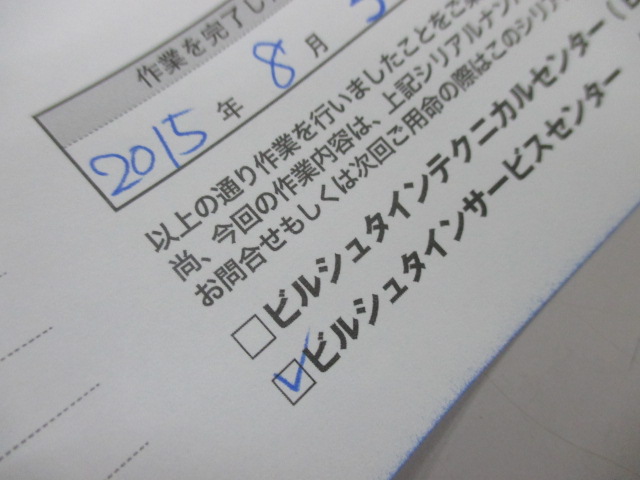 作業を完了し
2015年 8月
以上の通り作業を行いましたことをご
尚、今回の作業内容は、上記シリアルナン
お問合せもしくは次回ご用命の際はこのシリア
□ビルシュタインテクニカルセンター（
☑ビルシュタインサービスセンター